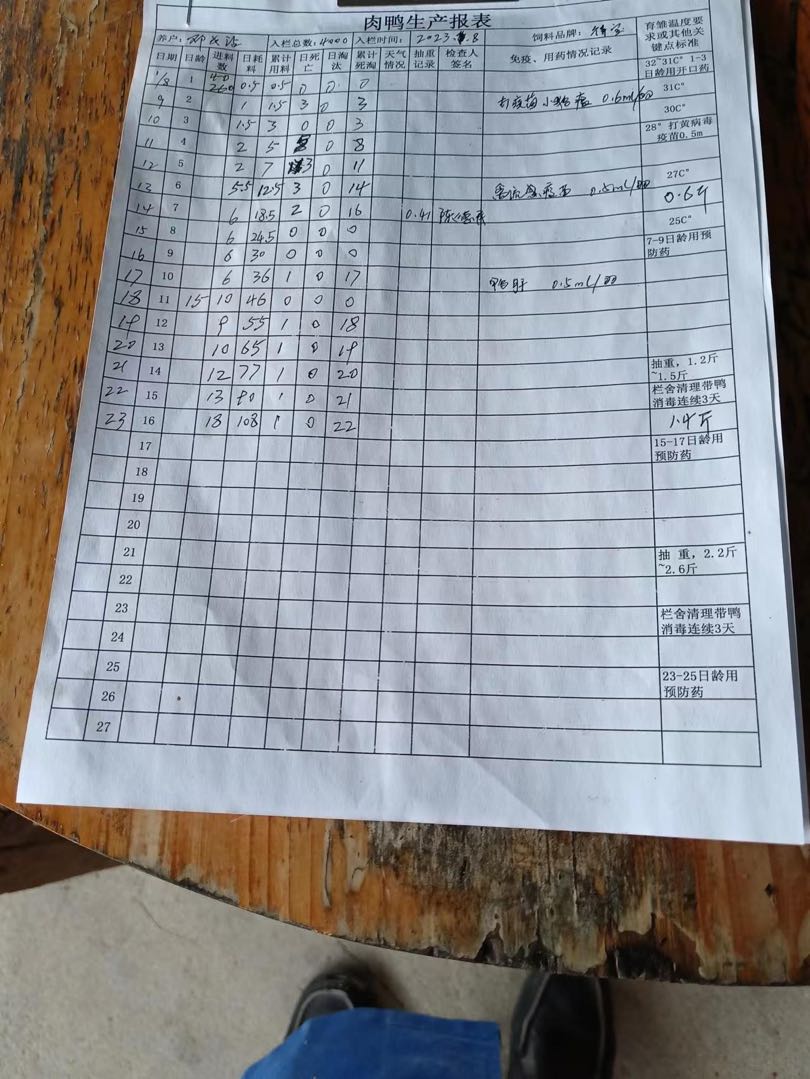 肉鸭生产报表
养户: 入栏总数:4000 入栏时间: 2023. .8 饲料品牌: 育雏温度要求或其他关键点标准
日期 日龄 进料数 日耗料 累计用料 日死亡 日淘汰 累计死淘 天气情况 抽重记录 检查人签名 免疫、用药情况记录
1/8 1 40 260 0.5 0.5 0 0 0 32~31C° 1-3日龄用开口药
9 2 1 1.5 3 0 3 打疫苗小鸭 0.6ml/羽 31C°
10 3 1.5 3 0 0 3 30C°
11 4 2 5 0 8 28° 打黄病毒疫苗0.5m
12 5 2 7 3 0 11 27C°
13 6 5.5 12.5 3 0 14 禽流感疫苗 0.5ml/羽 0.6斤
14 7 6 18.5 2 0 16 0.41 25C°
15 8 6 24.5 0 0 0 7-9日龄用预防药
16 9 6 30 0 0 0
17 10 6 36 1 0 17 鸭肝 0.5ml/羽
18 11 15 10 46 0 0 0
19 12 9 55 1 0 18
20 13 10 65 1 0 19
21 14 12 77 1 0 20 抽重，1.2斤~1.5斤
22 15 13 80 1 0 21 栏舍清理带鸭消毒连续3天
23 16 18 108 1 0 22 1.4斤
17 15-17日龄用预防药
18
19
20
21 抽 重，2.2斤~2.6斤
22
23 栏舍清理带鸭消毒连续3天
24
25 23-25日龄用预防药
26
27